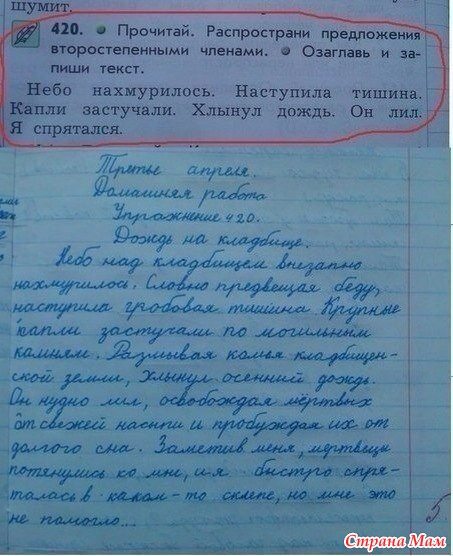 шумит.
420. ● Прочитай. Распространи предложения
второстепенными членами. ● Озаглавь и за-
пиши текст.
Небо нахмурилось. Наступила тишина.
Капли застучали. Хлынул дождь. Он лил.
Я спрятался.
Третье апреля.
Домашняя работа
Упражнение 420.
Дождь на кладбище.
Небо над кладбищем внезапно
нахмурилось. Словно предвещая беду,
наступила гробовая тишина. Крупные
капли застучали по могильным
камням. Размывая комья кладбищен-
ской земли, хлынул осенний дождь.
Он нудно лил, освобождая мёртвых
от свежей насыпи и пробуждая их от
долгого сна. Заметив меня, мертвецы
потянулись ко мне, и я быстро спря-
талась в каком-то склепе, но мне это
не помогло...
5
Страна Мам